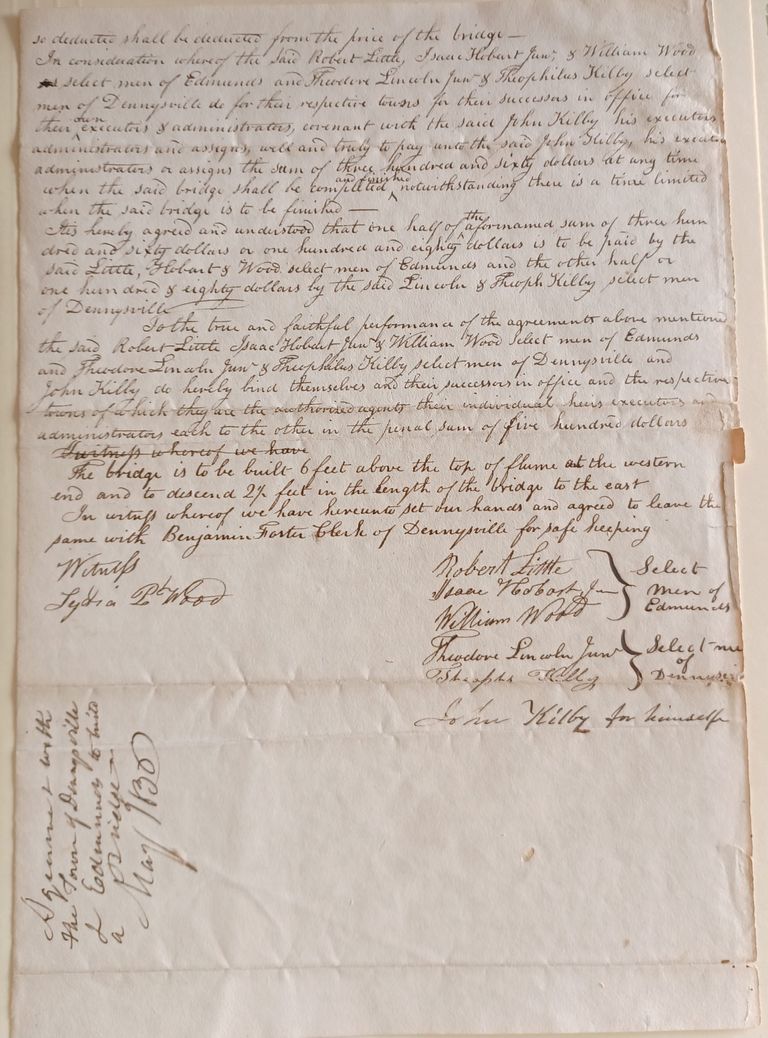 so deducted shall be deducted from the price of the bridge —
In consideration whereof the said Robert Little, Isaac Hobart Junr, & William Wood
select men of Edmunds and Theodore Lincoln Junr & Theophilus Kilby select
men of Dennysville do for their respective towns for their successors in office for
their executors & administrators, covenant with the said John Kilby his executors
administrators and assigns, well and truly to pay unto the said John Kilby, his executors
administrators or assigns the sum of three hundred and sixty dollars at any time
when the said bridge shall be completed and finished notwithstanding there is a time limited
when the said bridge is to be finished —
It is hereby agreed and understood that one half of the aforenamed sum of three hun
dred and sixty dollars or one hundred and eighty dollars is to be paid by the
said Little, Hobart & Wood select men of Edmunds and the other half or
one hundred & eighty dollars by the said Lincoln & Theoph Kilby select men
of Dennysville
To the true and faithful performance of the agreements above mentioned
the said Robert Little Isaac Hobart Junr & William Wood Select men of Edmunds
and Theodore Lincoln Junr & Theophilus Kilby select men of Dennysville and
John Kilby do hereby bind themselves and their successors in office and the respective
towns of which they are the authorised agents their individual heirs executors and
administrators each to the other in the penal sum of five hundred dollars
In witness whereof we have
The bridge is to be built 6 feet above the top of flume at the western
end and to descend 2½ feet in the length of the bridge to the east
In witness whereof we have hereunto set our hands and agreed to leave the
same with Benjamin Foster Clerk of Dennysville for safe keeping
Witness
Lydia Wood
Robert Little
Isaac Hobart Jun
William Wood
Select
men of
Edmunds
Theodore Lincoln Junr
Theophs Kilby
Select me
of
Dennysvi
John Kilby for himself
Agreemet with
the Town of Dennysville
& Edmunds to build
a Bridge
May 1830